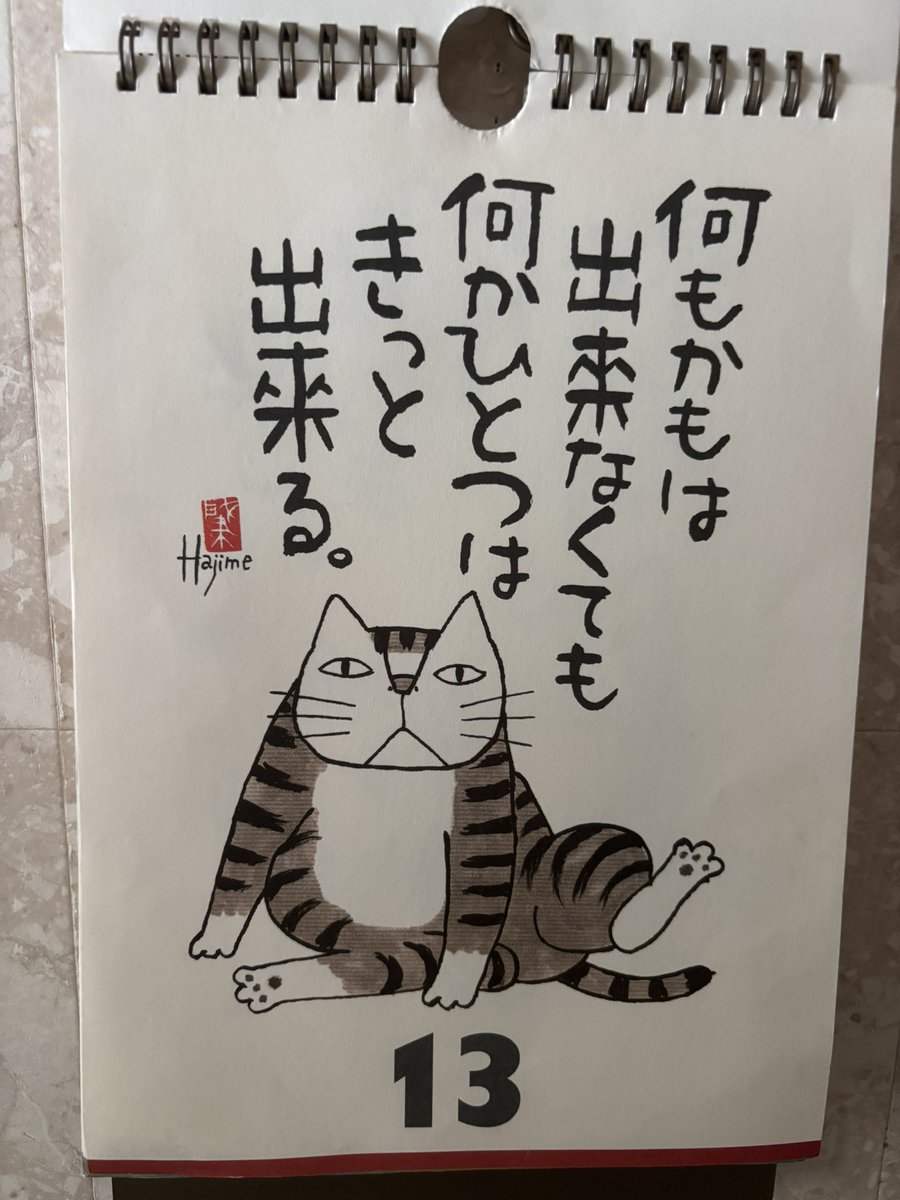 何もかもは
出来なくても
何かひとつは
きっと
出来る。
Hajime
13